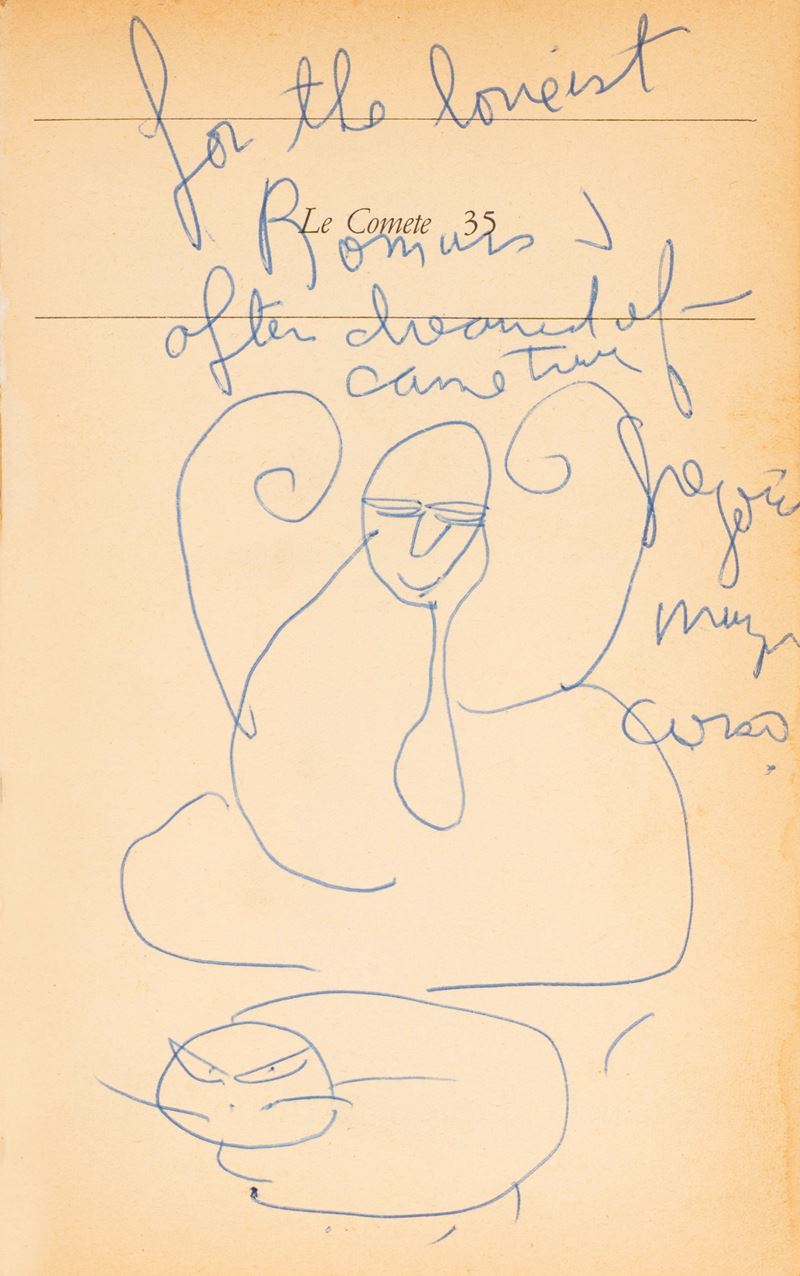 for the loneist
Le Comete 35
after dreamed of —
came true
Gregorio
Corso